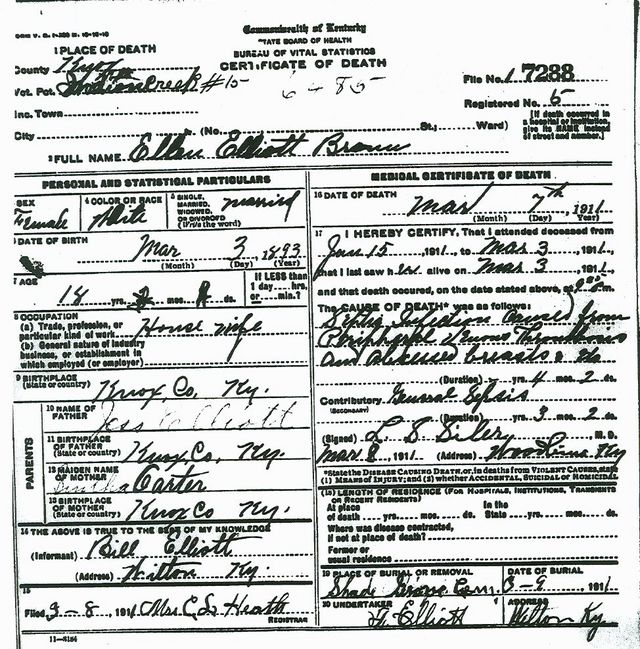 Commonwealth of Kentucky
STATE BOARD OF HEALTH
BUREAU OF VITAL STATISTICS
CERTIFICATE OF DEATH
1 PLACE OF DEATH
County Knox
Vot. Pct. Indian Creek #15
6485
File No. 17288
Registered No. 5
Inc. Town
City (No. St.; Ward)
[If death occurred in a hospital or institution, give its NAME instead of street and number.]
2 FULL NAME Ellen Elliott Brown
PERSONAL AND STATISTICAL PARTICULARS
SEX Female
4 COLOR OR RACE White
5 SINGLE, MARRIED, WIDOWED, OR DIVORCED (Write the word) married
DATE OF BIRTH Mar 3, 1893
(Month) (Day) (Year)
7 AGE 18 yrs. mos. ds.
If LESS than 1 day, hrs. or min.?
8 OCCUPATION
(a) Trade, profession, or particular kind of work House wife
(b) General nature of industry business, or establishment in which employed (or employer)
9 BIRTHPLACE (State or country) Knox Co, Ky.
PARENTS
10 NAME OF FATHER Jess Elliott
11 BIRTHPLACE OF FATHER (State or country) Knox Co, Ky.
12 MAIDEN NAME OF MOTHER Carter
13 BIRTHPLACE OF MOTHER (State or country) Knox Co Ky.
14 THE ABOVE IS TRUE TO THE BEST OF MY KNOWLEDGE
(Informant) Bill Elliott
(Address) Wilton Ky.
15
Filed 3-8, 1911 Mrs C. S. Heath
REGISTRAR
11-8184
MEDICAL CERTIFICATE OF DEATH
16 DATE OF DEATH Mar 7th, 1911
(Month) (Day) (Year)
17 I HEREBY CERTIFY, That I attended deceased from
Jan 15, 1911, to Mar 3, 1911,
that I last saw her alive on Mar 3, 1911,
and that death occured, on the date stated above, at m.
The CAUSE OF DEATH* was as follows:
Septic Infection caused from
Peripheral Venous Thrombosis
and abscessed breasts &
(Duration) yrs. 4 mos. 2 ds.
Contributory General Sepsis
(SECONDARY)
(Duration) yrs. 3 mos. 2 ds.
(Signed) L. S. Siler, M. D.
Mar 8, 1911. (Address) Woodbine Ky
*State the DISEASE CAUSING DEATH, or, in deaths from VIOLENT CAUSES, state
(1) MEANS OF INJURY; and (2) whether ACCIDENTAL, SUICIDAL or HOMICIDAL
(18) LENGTH OF RESIDENCE (FOR HOSPITALS, INSTITUTIONS, TRANSIENTS OR RECENT RESIDENTS)
At place of death yrs. mos. ds. In the State yrs. mos. ds.
Where was disease contracted, if not at place of death?
Former or usual residence
19 PLACE OF BURIAL OR REMOVAL Shady Grove Cem
DATE OF BURIAL 3-9, 1911
20 UNDERTAKER Elliott
ADDRESS Wilton Ky